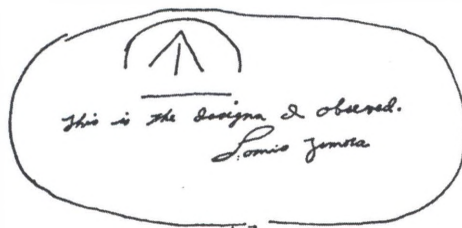 This is the designa I observed.
Lonnie Zamora